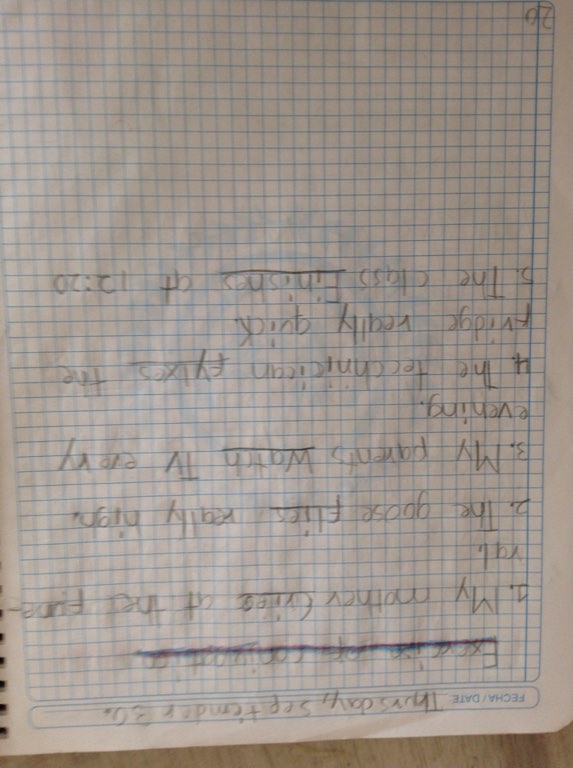 FECHA/DATE Thursday, September 30.
Exercise
1. My mother cries at the fune-
ral.
2. The goose flies really high.
3. My parents watch TV every
evening.
4. The tecchnician fyixes the
fridge really quick.
5. The class Finishes at 12:20
20